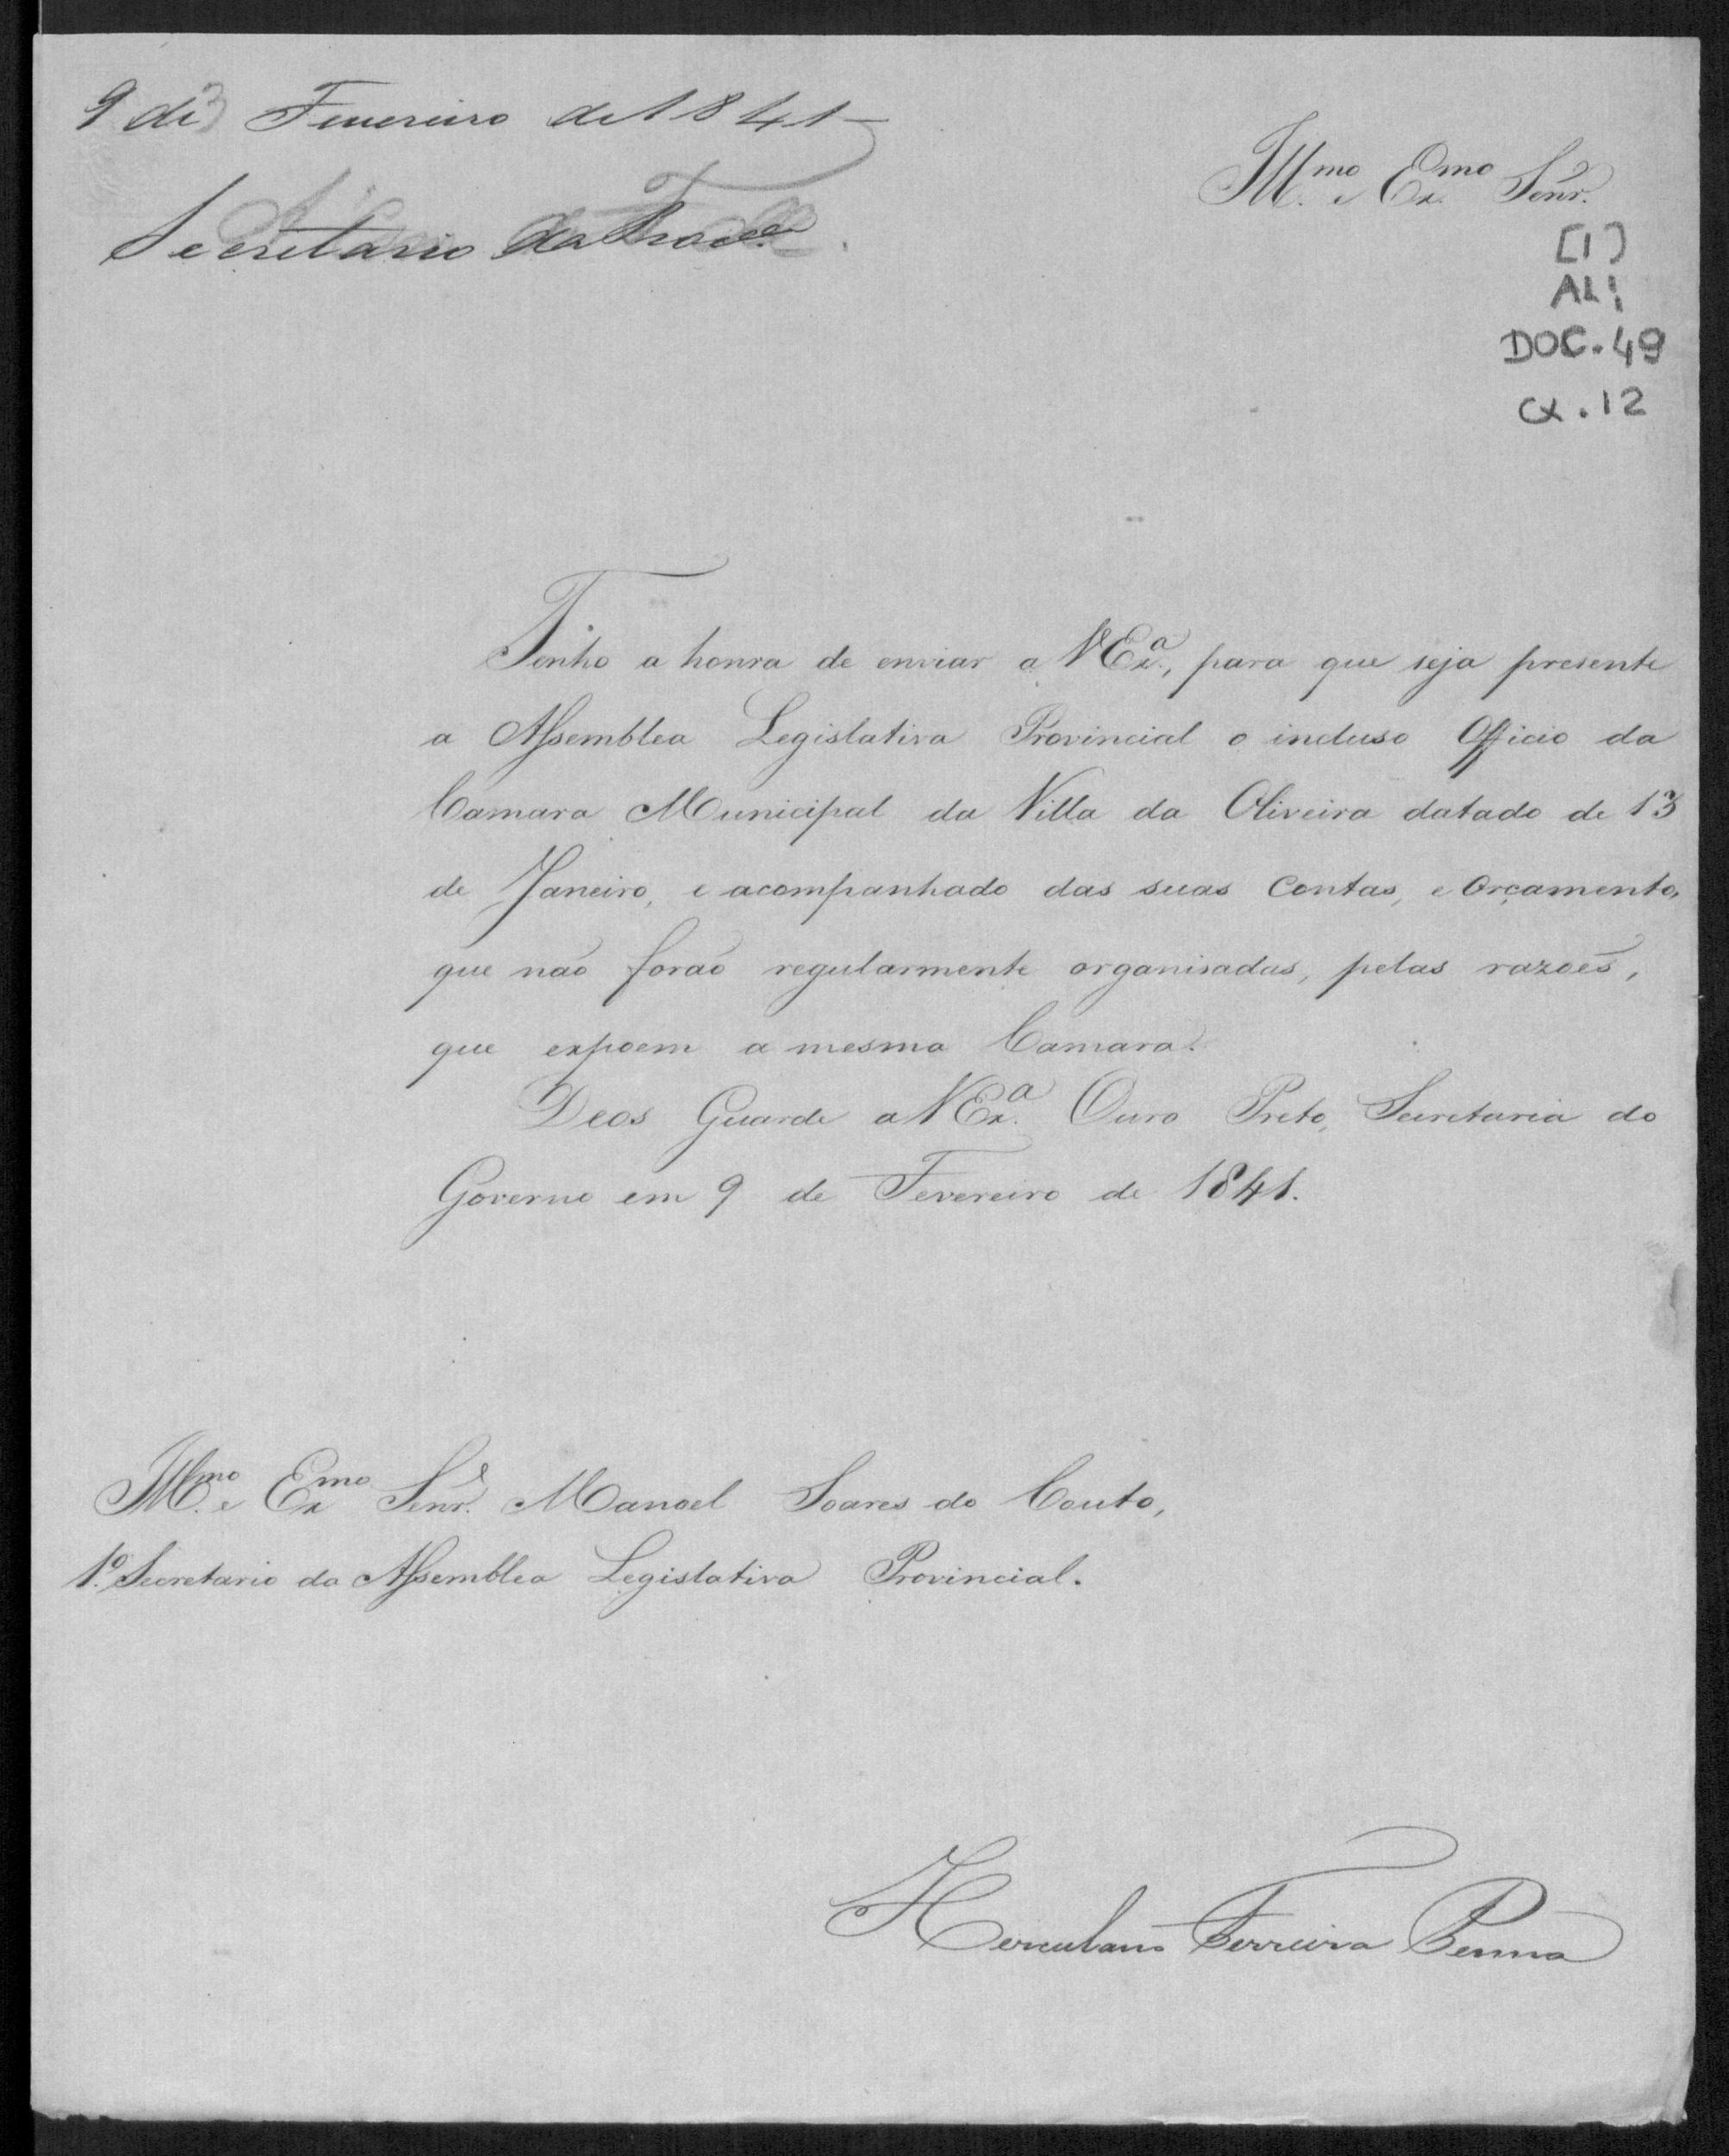 9 de Fevereiro de 1841
Secretario da
Illmo. e Exmo. Senr.
[1]
AL1
DOC. 49
CX. 12
Tenho a honra de enviar a V Exa., para que seja presente
a Assemblea Legislativa Provincial o incluso Officio da
Camara Municipal da Villa da Oliveira datado de 13
de Janeiro, e acompanhado das suas Contas, e Orçamento,
que não forão regularmente organisadas, pelas razoẽs,
que expoem a mesma Camara.
Deos Guarde a V Exa. Ouro Preto, Secretaria do
Governo em 9 de Fevereiro de 1841.
Illmo. e Exmo. Senr. Manoel Soares do Couto,
1º. Secretario da Assemblea Legislativa Provincial.
Herculano Ferreira Penna